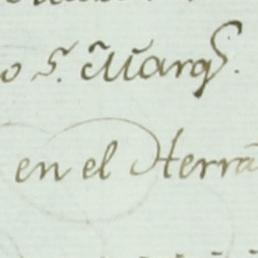 o S.r Marq.s
en el Terra